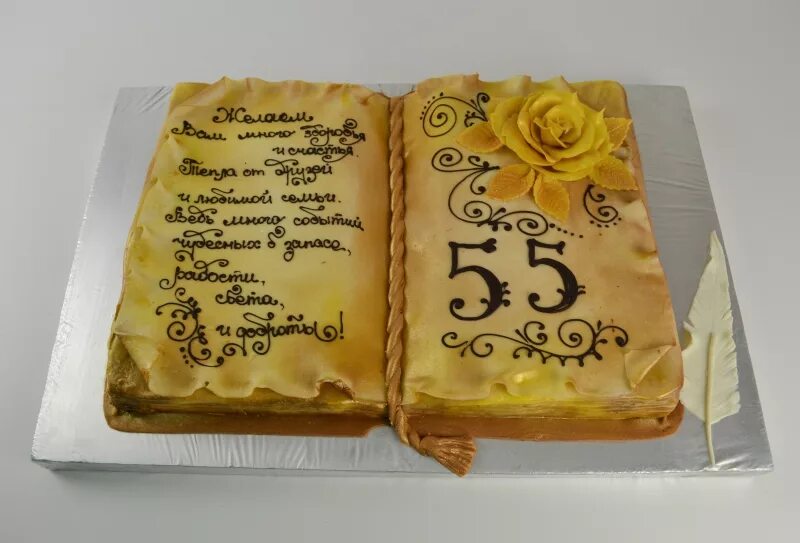 Желаем
Вам много здоровья
и счастья.
Тепла от друзей
и любимой семьи.
Ведь много событий
чудесных в запасе,
радости,
света,
и доброты!
55